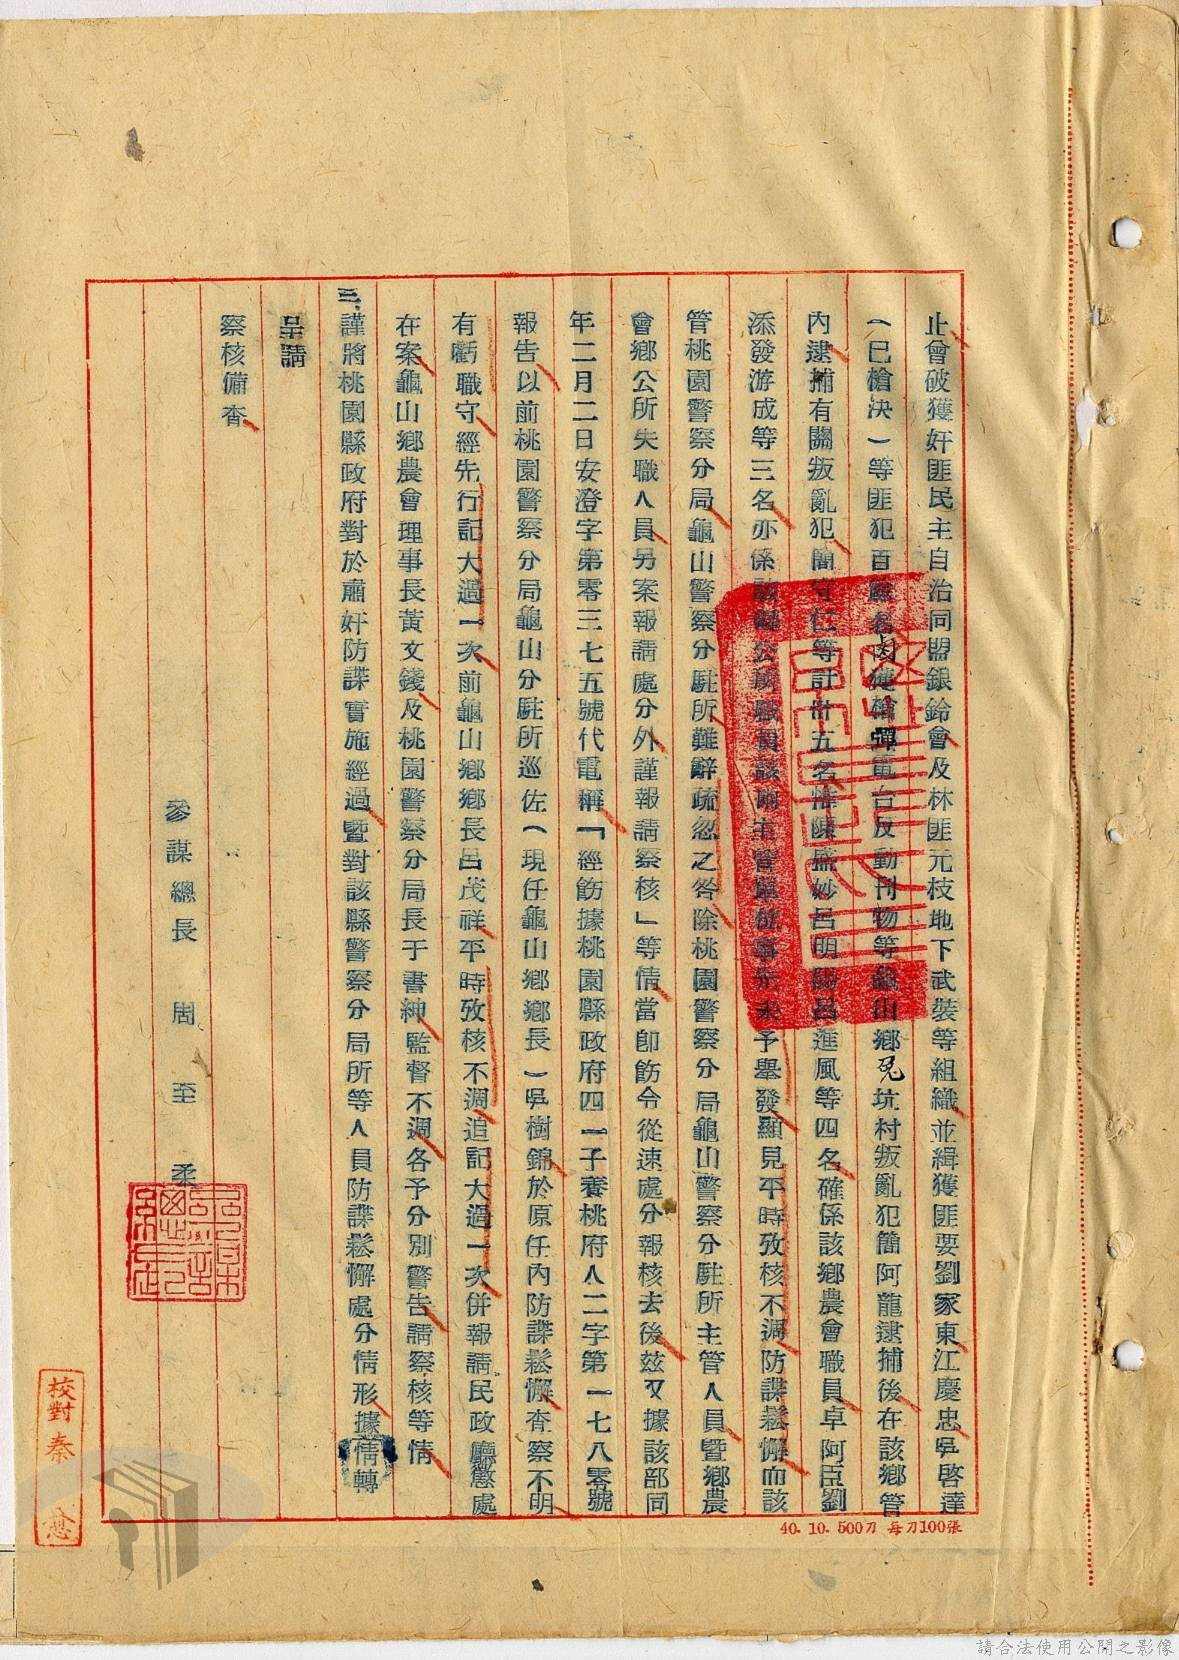 止曾破獲奸匪民主自治同盟銀鈴會及林匪元枝地下武裝等組織並緝獲匪要劉家東江慶忠吳啓達
(已槍決)等匪犯百餘名內獲槍彈電台反動刊物等龜山鄉兔坑村叛亂犯簡阿龍逮捕後在該鄉管
內逮捕有關叛亂犯簡守仁等計卅五名惟陳盛妙呂明呂進風等四名確係該鄉農會職員卓阿臣劉
添發游成等三名亦係該鄉公所職員該兩主管單位事先未予舉發顯見平時攷核不週防諜鬆懈而該
管桃園警察分局龜山警察分駐所難辭疏忽之咎除桃園警察分局龜山警察分駐所主管人員暨鄉農
會鄉公所失職人員另案報請處分外謹報請察核」等情當卽飭令從速處分報核去後茲又據該部同
年二月二日安澄字第零三七五號代電稱「經飭據桃園縣政府四一子養桃府人二字第一七八零號
報告以前桃園警察分局龜山分駐所巡佐(現任龜山鄉鄉長)吳樹錦於原任內防諜鬆懈查察不明
有虧職守經先行記大過一次前龜山鄉鄉長呂茂祥平時攷核不週追記大過一次併報請民政廳懲處
在案龜山鄉農會理事長黃文錢及桃園警察分局長于書紳監督不週各予分別警告請察核等情
三、謹將桃園縣政府對於肅奸防諜實施經過暨對該縣警察分局所等人員防諜鬆懈處分情形據情轉
呈請
察核備查
參謀總長 周至柔
校對秦
40.10.500刀 每刀100張
請合法使用公開之影像